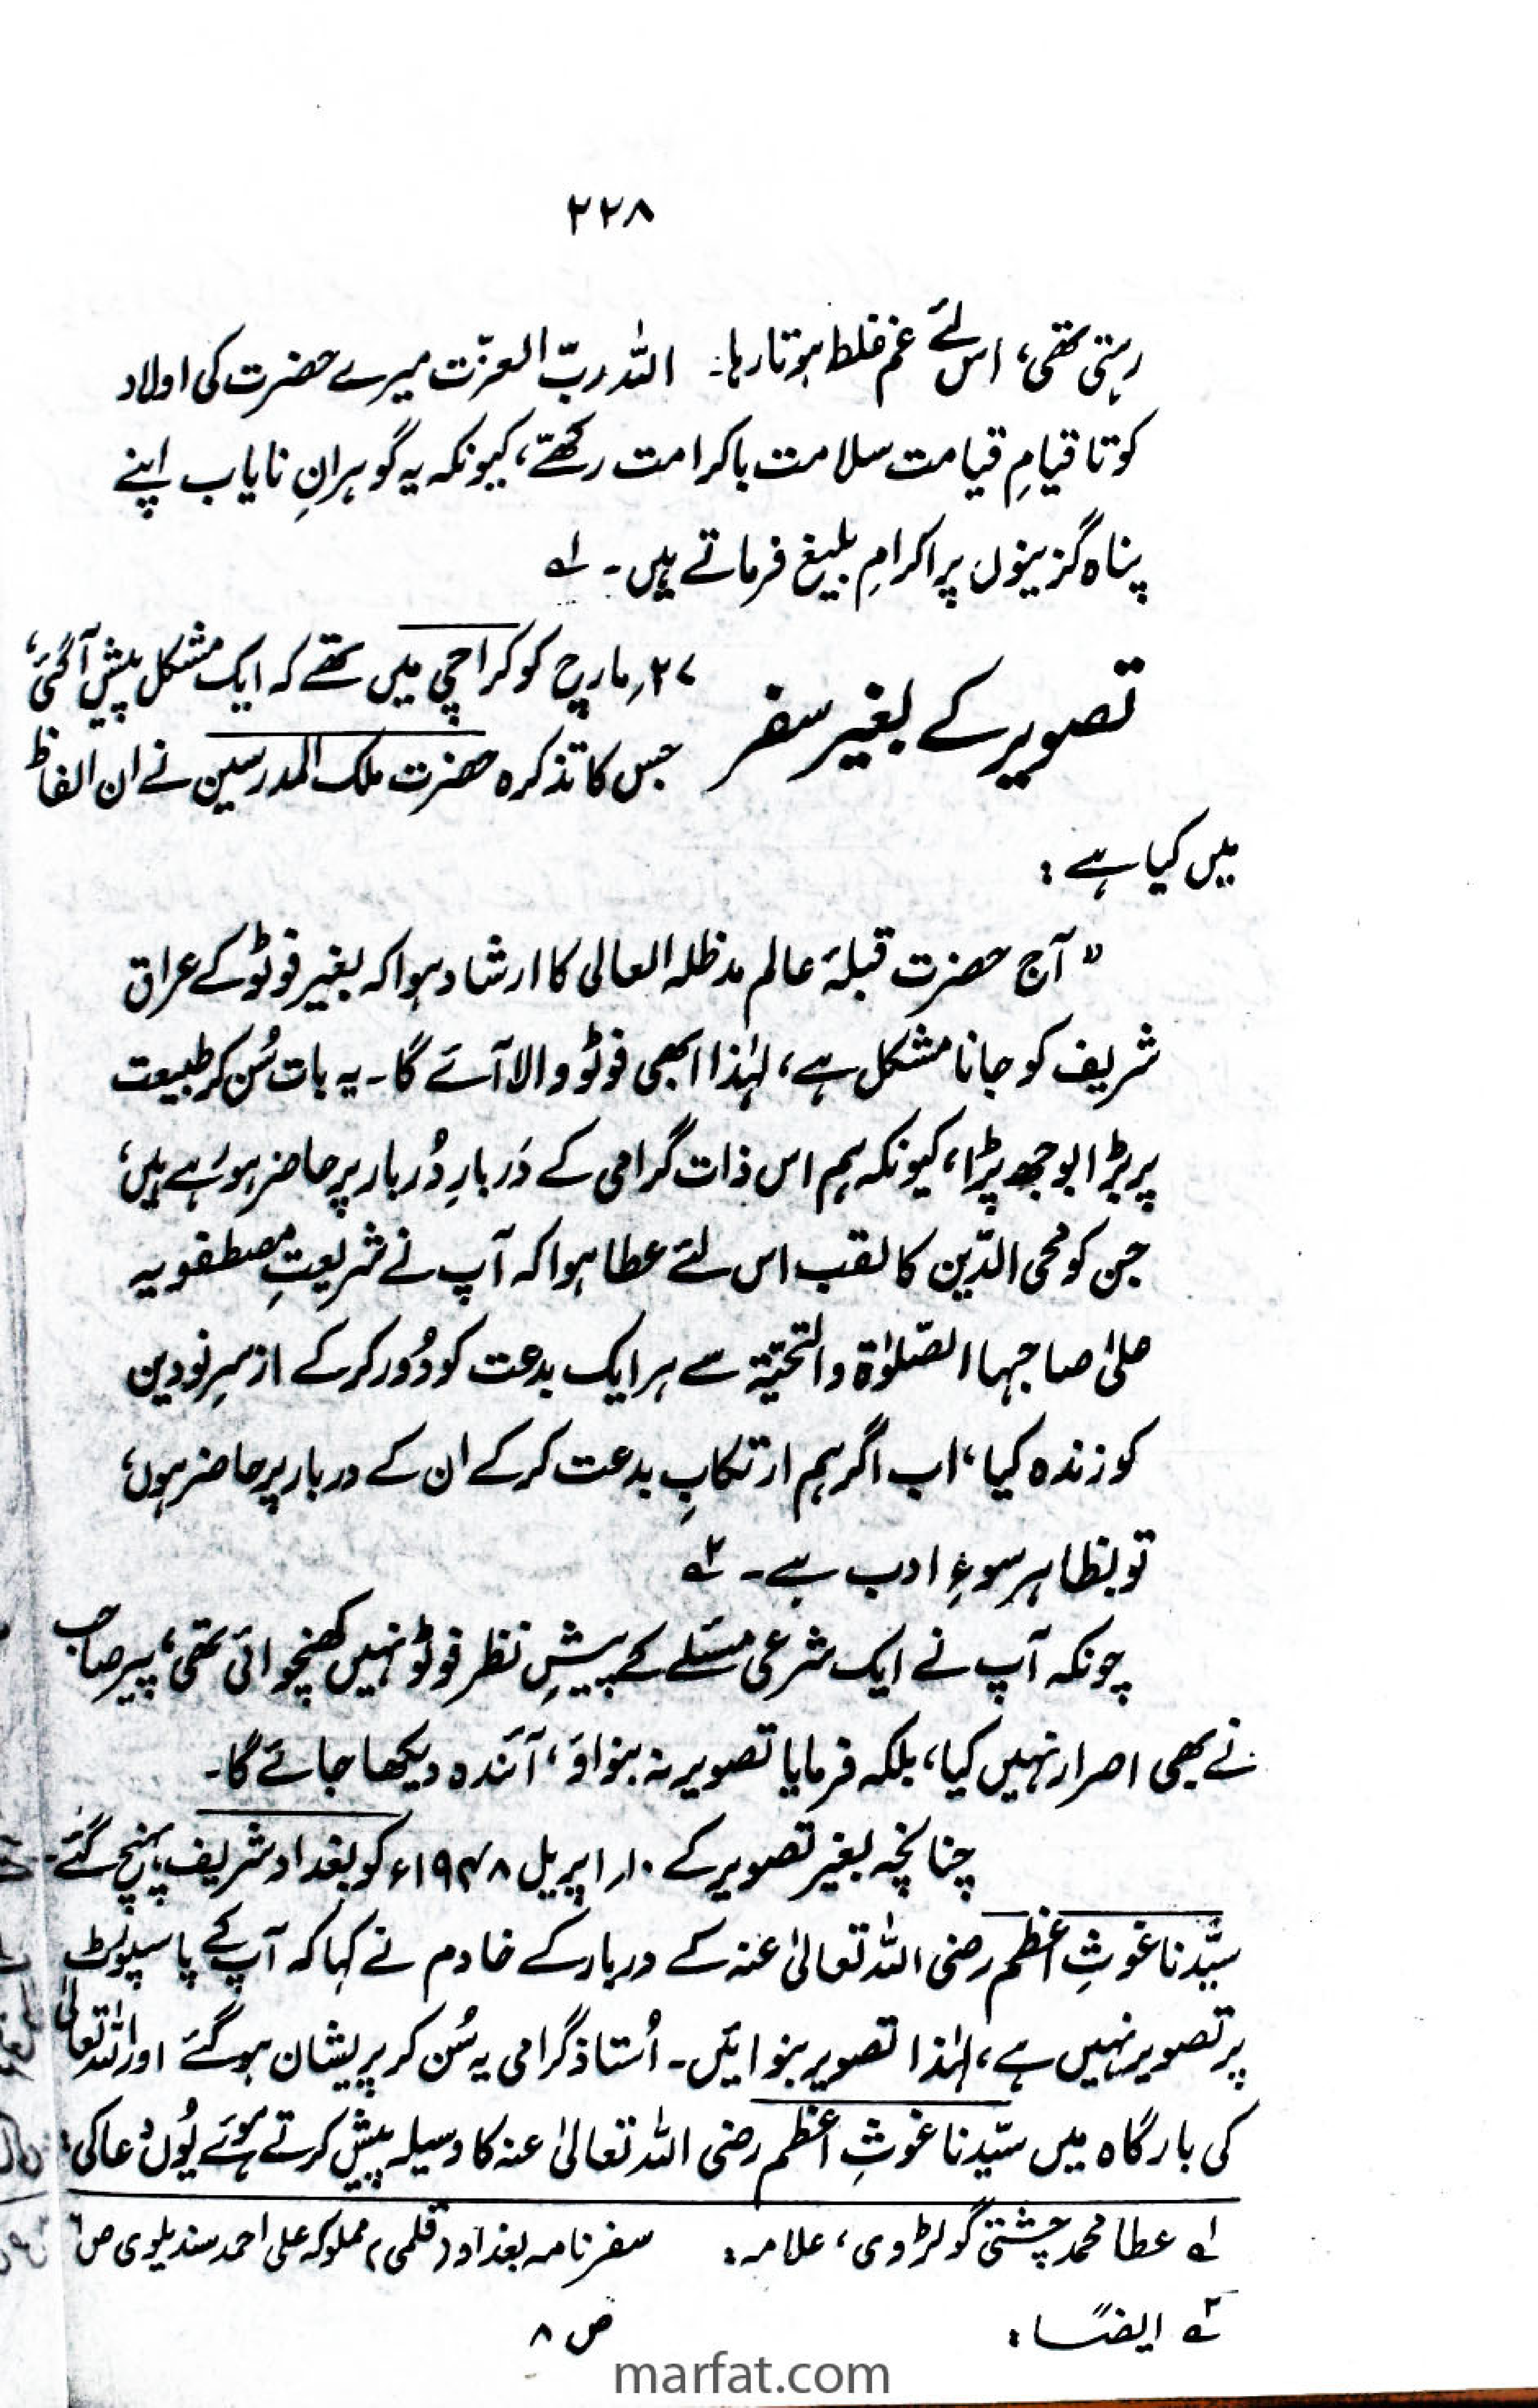 ۲۲۸
رہتی تھی، اس لئے غم غلط ہوتا رہا۔ اللہ ربّ العزّت میرے حضرت کی اولاد
کو تا قیامِ قیامت سلامت باکرامت رکھّے، کیونکہ یہ گوہرانِ نایاب اپنے
پناہ گزینوں پر اکرامِ بلیغ فرماتے ہیں۔ ۱؎
تصویر کے بغیر سفر
۲۷؍ مارچ کو کراچی میں تھے کہ ایک مشکل پیش آ گئی،
جس کا تذکرہ حضرت ملک المدرسین نے ان الفاظ
میں کیا ہے :
" آج حضرت قبلۂ عالم مدظلہ العالی کا ارشاد ہوا کہ بغیر فوٹو کے عراق
شریف کو جانا مشکل ہے، لہٰذا ابھی فوٹو والا آئے گا۔ یہ بات سُن کر طبیعت
پر بڑا بوجھ پڑا، کیونکہ ہم اس ذات گرامی کے دَربارِ دُربار پر حاضر ہو رہے ہیں،
جن کو محی الدّین کا لقب اس لئے عطا ہوا کہ آپ نے شریعتِ مصطفویہ
علیٰ صاحبہا الصّلوٰۃ والتحیّۃ سے ہر ایک بدعت کو دُور کر کے از سرِ نو دین
کو زندہ کیا، اب اگر ہم ارتکابِ بدعت کر کے ان کے دربار پر حاضر ہوں،
تو بظاہر سوءِ ادب ہے۔ ۲؎
چونکہ آپ نے ایک شرعی مسئلے کے پیشِ نظر فوٹو نہیں کھنچوائی تھی، پیر صاحب
نے بھی اصرار نہیں کیا، بلکہ فرمایا تصویر نہ بنواؤ، آئندہ دیکھا جائے گا۔
چنانچہ بغیر تصویر کے ۱۰؍ اپریل ۱۹۴۸ء کو بغداد شریف پہنچ گئے۔
سیّدنا غوثِ اعظم رضی اللہ تعالیٰ عنہ کے دربار کے خادم نے کہا کہ آپ کے پاسپورٹ
پر تصویر نہیں ہے، لہٰذا تصویر بنوائیں۔ اُستاذ گرامی یہ سُن کر پریشان ہو گئے اور اللہ تعالیٰ
کی بارگاہ میں سیّدنا غوثِ اعظم رضی اللہ تعالیٰ عنہ کا وسیلہ پیش کرتے ہوئے یُوں دُعا کی:
۱؎ عطا محمد چشتی گولڑوی، علامہ: سفرنامہ بغداد (قلمی) مملوکہ علی احمد سندیلوی ص ۶
۲؎ ایضًا : ص ۸
marfat.com